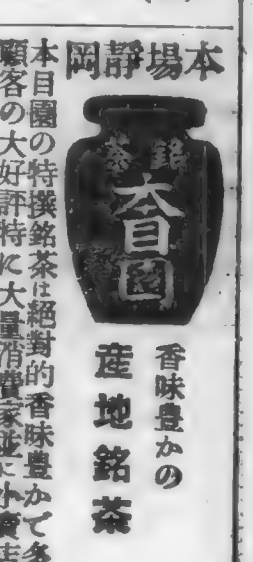 本場靜岡
銘茶
本目園
香味豊かの
産地銘茶
本目園の特撰銘茶は絕對的香味豊かで各
顧客の大好評特に大量消費家並に小賣店